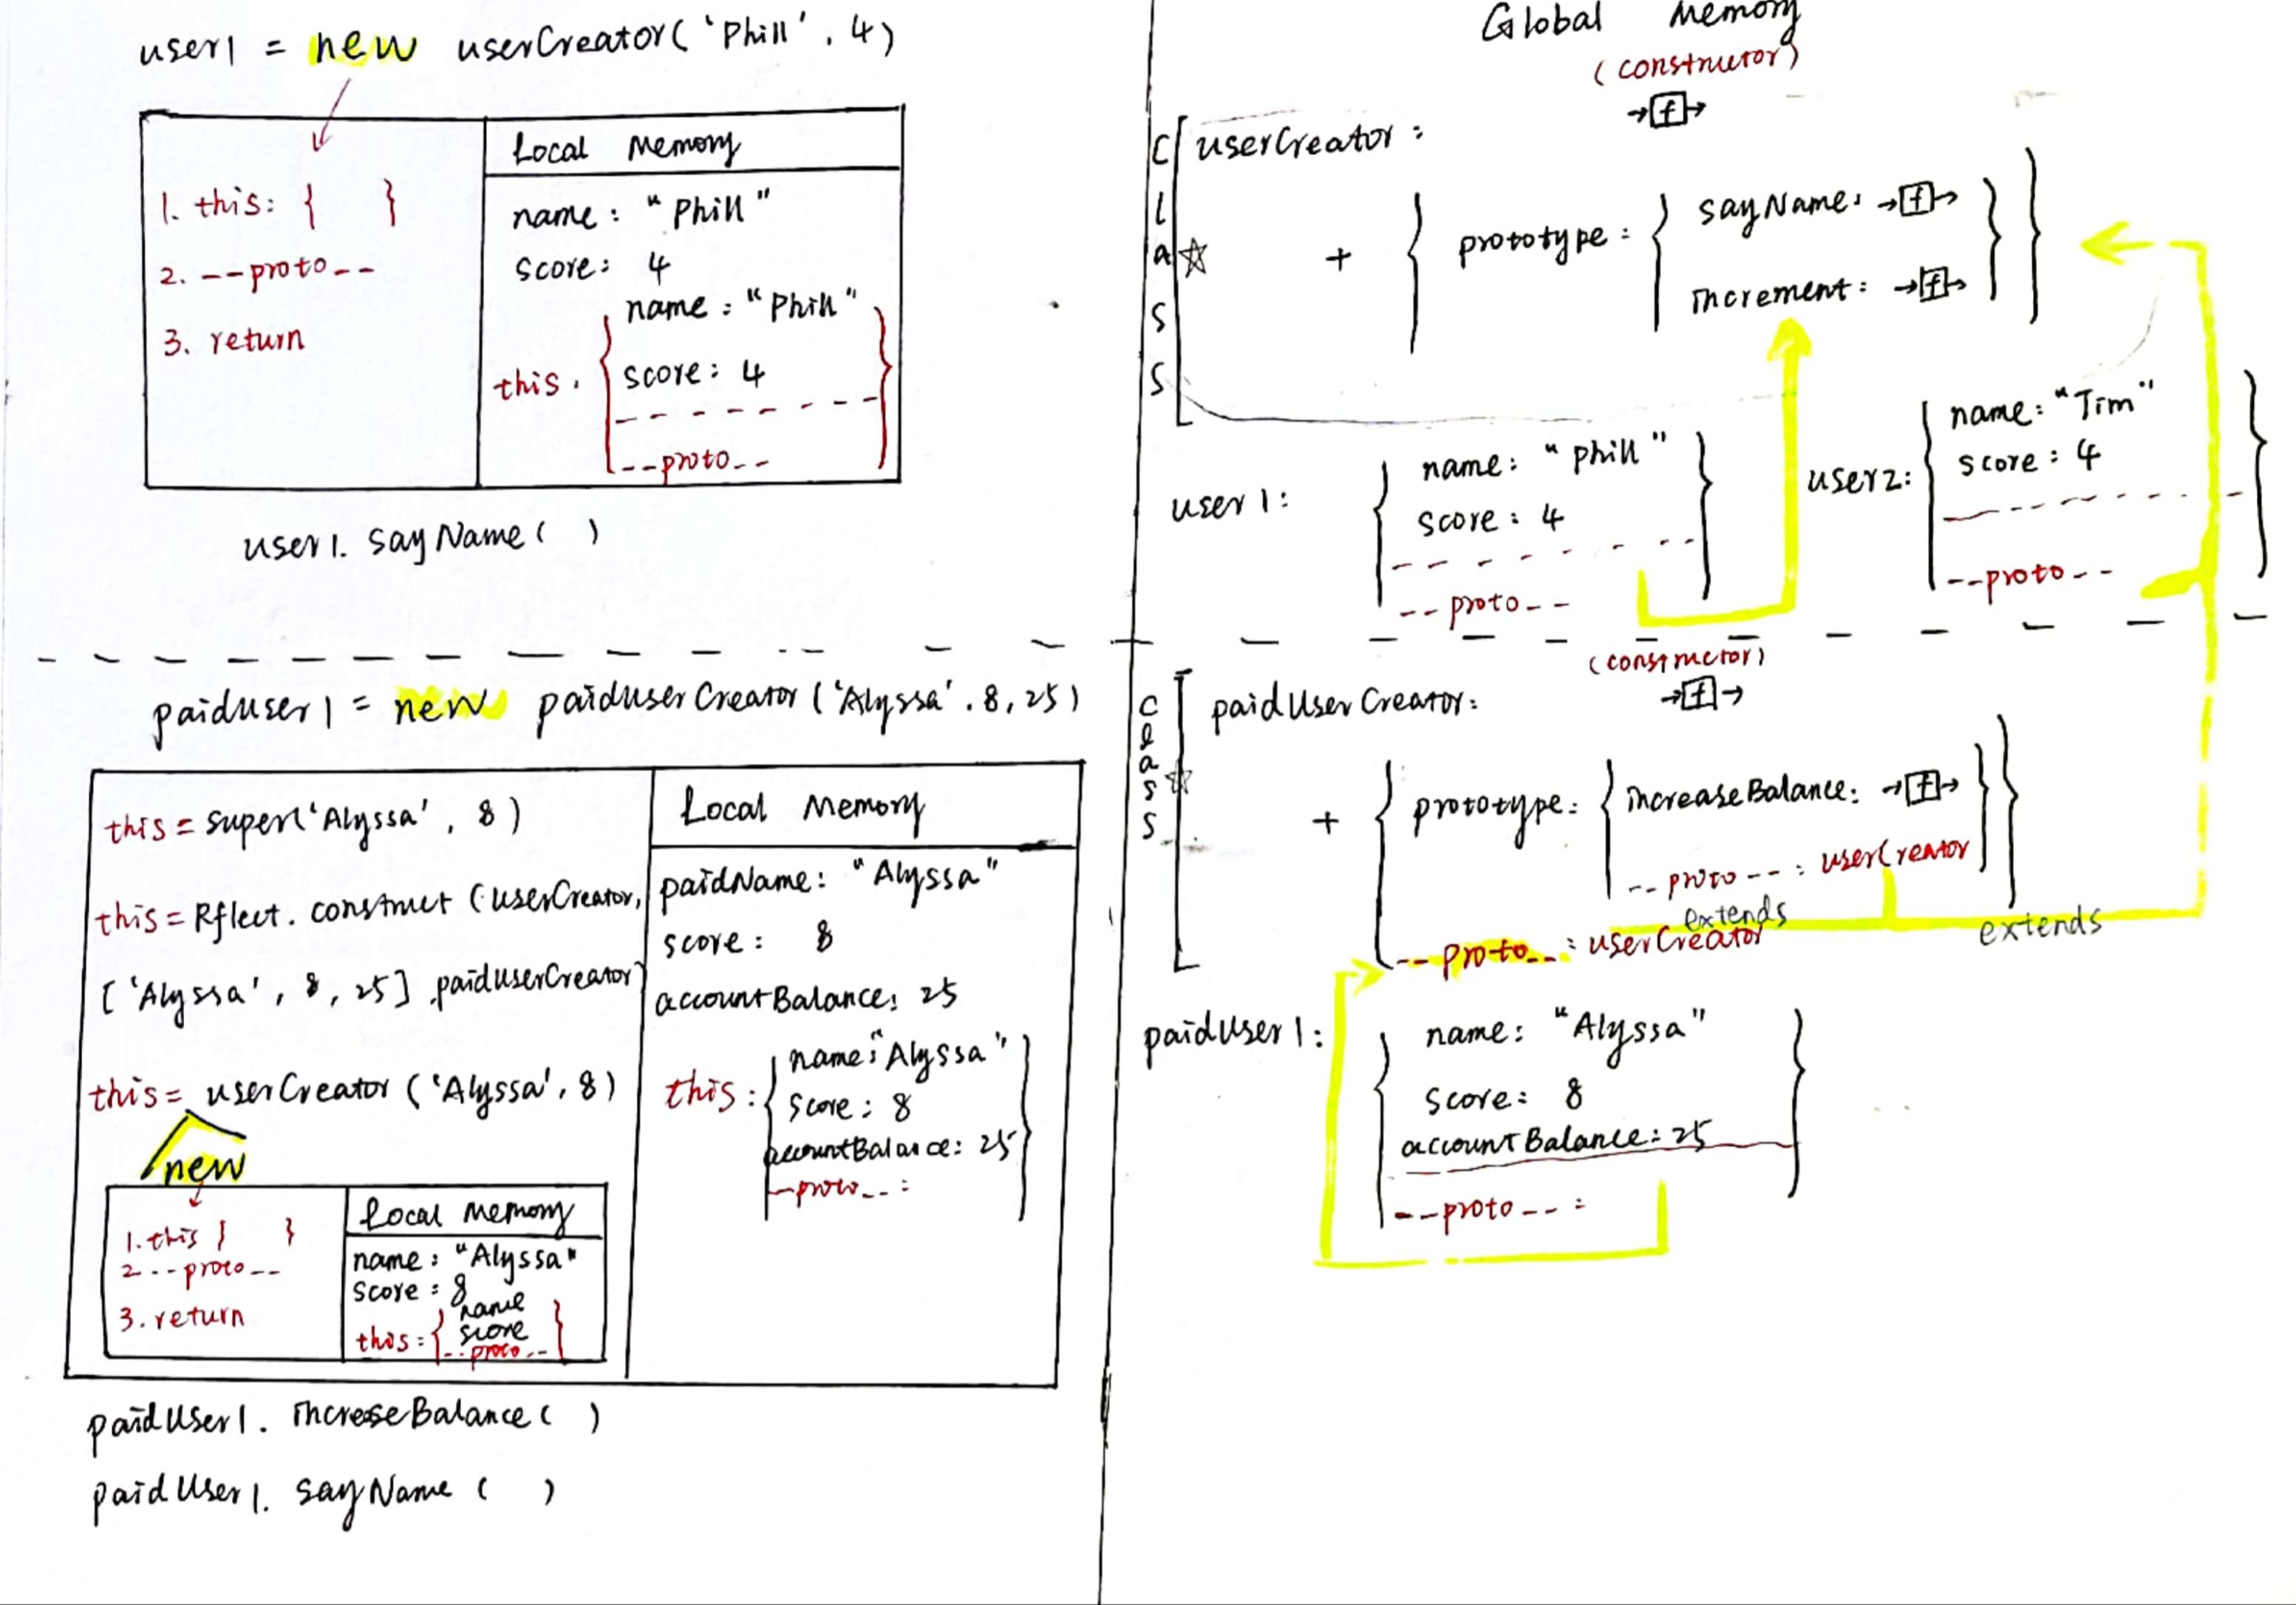 user1 = new userCreator('Phill', 4)
Local Memory
1. this: { }
2. --proto--
3. return
name: "Phill"
score: 4
name: "Phill"
this:
score: 4
--proto--
user1. sayName( )
paiduser1 = new paiduserCreator('Alyssa', 8, 25)
this = super('Alyssa', 8)
this = Rflect. construct (userCreator,
['Alyssa', 8, 25], paiduserCreator)
this = userCreator ('Alyssa', 8)
new
1. this { }
2. --proto--
3. return
Local Memory
name: "Alyssa"
score: 8
name
this: { score }
--proto--
Local Memory
paidName: "Alyssa"
score: 8
accountBalance: 25
name: "Alyssa"
this: { score: 8 }
accountBalance: 25
--proto--:
paidUser1. increseBalance( )
paidUser1. sayName ( )
Global Memory
(constructor)
Class
userCreator: →[f]→
sayName: →[f]→
+ { prototype: { } }
increment: →[f]→
user1: { name: "Phill"
score: 4
--proto-- }
user2: { name: "Tim"
score: 4
--proto-- }
(constructor)
Class
paidUserCreator: →[f]→
+ { prototype: { increaseBalance: →[f]→
--proto--: userCreator } }
extends
extends
--proto--: userCreator
paidUser1: { name: "Alyssa"
score: 8
accountBalance: 25
--proto--: }